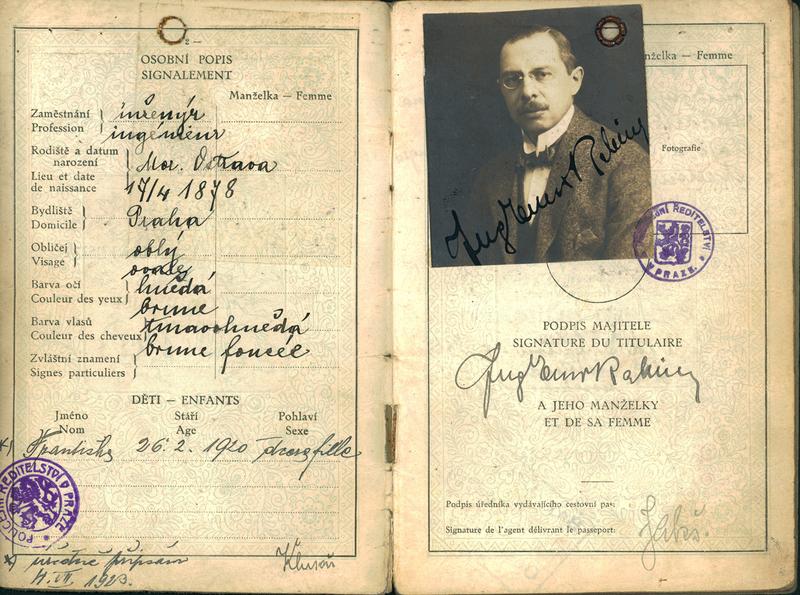 2 —
OSOBNÍ POPIS
SIGNALEMENT
Manželka — Femme
Zaměstnání
Profession
inženýr
ingénieur
Rodiště a datum
narození
Lieu et date
de naissance
Mor. Ostrava
17/4 1878
Bydliště
Domicile
Praha
Obličej
Visage
oblý
ovale
Barva očí
Couleur des yeux
hnědá
brune
Barva vlasů
Couleur des cheveux
tmavohnědá
brune foncée
Zvláštní znamení
Signes particuliers
DĚTI — ENFANTS
Jméno Stáří Pohlaví
Nom Age Sexe
26. 2. 1920 fille
POLICEJNÍ ŘEDITELSTVÍ V PRAZE
x) úředně připsán
1923.
nželka — Femme
Fotografie
ŘEDITELSTVÍ
V PRAZE
PODPIS MAJITELE
SIGNATURE DU TITULAIRE
A JEHO MANŽELKY
ET DE SA FEMME
Podpis úředníka vydávajícího cestovní pas:
Signature de l'agent délivrant le passeport: